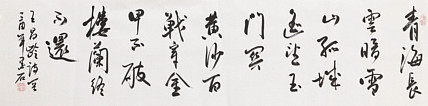 青海長
雲暗雪
山孤城
遙望玉
門關
黃沙百
戰穿金
甲不破
樓蘭終
不還
王昌齡詩